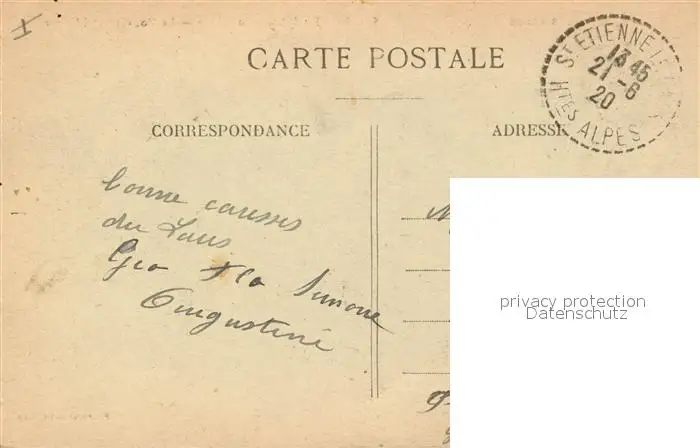 CARTE POSTALE
ST ETIENNE LE
13 45
21 -6
20
HTES ALPES
CORRESPONDANCE
ADRESSE
bonne caresses
du Laus
Geo Simone
Augustine
privacy protection
Datenschutz